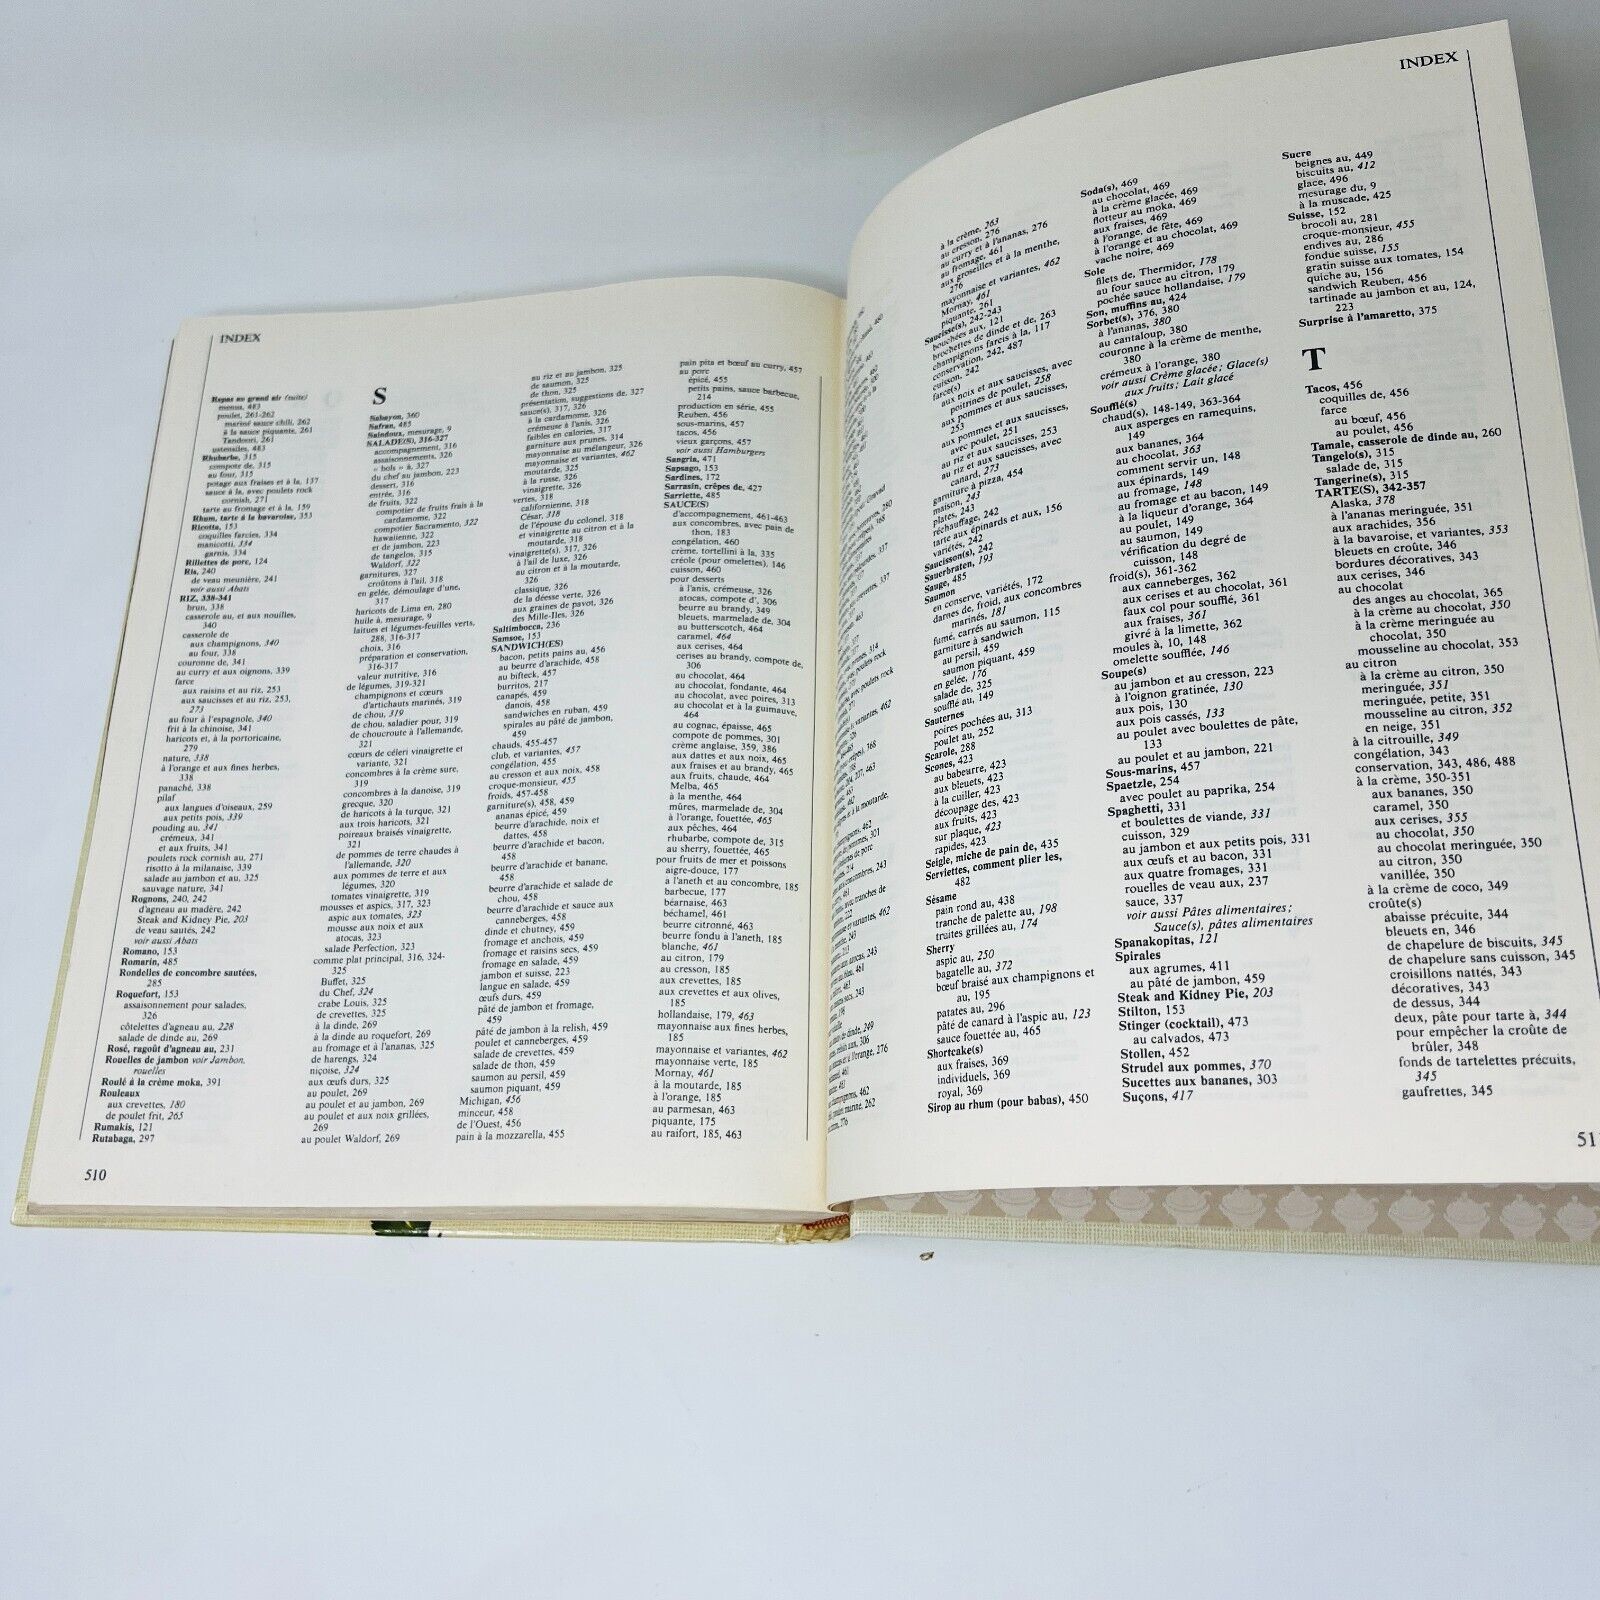 INDEX
Repas au grand air (suite)
menus, 483
poulet, 261-262
mariné sauce chili, 262
à la sauce piquante, 261
Tandouri, 261
ustensiles, 483
Rhubarbe, 315
compote de, 315
au four, 315
potage aux fraises et à la, 137
sauce à la, avec poulets rock
cornish, 271
tarte au fromage et à la, 159
Rhum, tarte à la bavaroise, 353
Ricotta, 153
coquilles farcies, 334
manicotti, 334
garnis, 334
Rillettes de porc, 124
Ris, 240
de veau meunière, 241
voir aussi Abats
RIZ, 338-341
brun, 338
casserole au, et aux nouilles,
340
casserole de
aux champignons, 340
au four, 338
couronne de, 341
au curry et aux oignons, 339
farce
aux raisins et au riz, 253
aux saucisses et au riz, 253,
273
au four à l'espagnole, 340
frit à la chinoise, 341
haricots et, à la portoricaine,
279
nature, 338
à l'orange et aux fines herbes,
338
panaché, 338
pilaf
aux langues d'oiseaux, 259
aux petits pois, 339
pouding au, 341
crémeux, 341
et aux fruits, 341
poulets rock cornish au, 271
risotto à la milanaise, 339
salade au jambon et au, 325
sauvage nature, 341
Rognons, 240, 242
d'agneau au madère, 242
Steak and Kidney Pie, 203
de veau sautés, 242
voir aussi Abats
Romano, 153
Romarin, 485
Rondelles de concombre sautées,
285
Roquefort, 153
assaisonnement pour salades,
326
côtelettes d'agneau au, 228
salade de dinde au, 269
Rosé, ragoût d'agneau au, 231
Rouelles de jambon voir Jambon,
rouelles
Roulé à la crème moka, 391
Rouleaux
aux crevettes, 180
de poulet frit, 265
Rumakis, 121
Rutabaga, 297
S
Sabayon, 360
Safran, 485
Saindoux, mesurage, 9
SALADE(S), 316-327
accompagnement, 316
assaisonnements, 326
« bols » à, 327
du chef au jambon, 223
dessert, 316
entrée, 316
de fruits, 322
compotier de fruits frais à la
cardamome, 322
compotier Sacramento, 322
hawaiienne, 322
et de jambon, 223
de tangelos, 315
Waldorf, 322
garnitures, 327
croûtons à l'ail, 318
en gelée, démoulage d'une,
317
haricots de Lima en, 280
huile à, mesurage, 9
laitues et légumes-feuilles verts,
288, 316-317
choix, 316
préparation et conservation,
316-317
valeur nutritive, 316
de légumes, 319-321
champignons et cœurs
d'artichauts marinés, 319
de chou, 319
de chou, saladier pour, 319
de choucroute à l'allemande,
321
cœurs de céleri vinaigrette et
variante, 321
concombres à la crème sure,
319
concombres à la danoise, 319
grecque, 320
de haricots à la turque, 321
aux trois haricots, 321
poireaux braisés vinaigrette,
321
de pommes de terre chaudes à
l'allemande, 320
aux pommes de terre et aux
légumes, 320
tomates vinaigrette, 319
mousses et aspics, 317, 323
aspic aux tomates, 323
mousse aux noix et aux
atocas, 323
salade Perfection, 323
comme plat principal, 316, 324-
325
Buffet, 325
du Chef, 324
crabe Louis, 325
de crevettes, 325
à la dinde, 269
à la dinde au roquefort, 269
au fromage et à l'ananas, 325
de harengs, 324
niçoise, 324
aux œufs durs, 325
au poulet, 269
au poulet et au jambon, 269
au poulet et aux noix grillées,
269
au poulet Waldorf, 269
au riz et au jambon, 325
de saumon, 325
de thon, 325
présentation, suggestions de, 327
sauce(s), 317, 326
à la cardamome, 326
crémeuse à l'anis, 326
faibles en calories, 317
garniture aux prunes, 314
mayonnaise au mélangeur, 326
mayonnaise et variantes, 462
moutarde, 325
à la russe, 326
vinaigrette, 326
vertes, 318
californienne, 318
César, 318
de l'épouse du colonel, 318
et vinaigrette au citron et à la
moutarde, 318
vinaigrette(s), 317, 326
à l'ail de luxe, 326
au citron et à la moutarde,
326
classique, 326
de la déesse verte, 326
aux graines de pavot, 326
des Mille-Iles, 326
Saltimbocca, 236
Samsoe, 153
SANDWICH(ES)
bacon, petits pains au, 456
au beurre d'arachide, 458
au bifteck, 457
burritos, 217
canapés, 459
danois, 458
sandwiches en ruban, 459
spirales au pâté de jambon,
459
chauds, 455-457
club, et variantes, 457
congélation, 455
au cresson et aux noix, 458
croque-monsieur, 455
froids, 457-458
garniture(s), 458, 459
ananas épicé, 459
beurre d'arachide, noix et
dattes, 458
beurre d'arachide et bacon,
458
beurre d'arachide et banane,
458
beurre d'arachide et salade de
chou, 458
beurre d'arachide et sauce aux
canneberges, 458
dinde et chutney, 459
fromage et anchois, 459
fromage et raisins secs, 459
fromage en salade, 459
jambon et suisse, 223
langue en salade, 459
œufs durs, 459
pâté de jambon et fromage,
459
pâté de jambon à la relish, 459
poulet et canneberges, 459
salade de crevettes, 459
salade de thon, 459
saumon au persil, 459
saumon piquant, 459
Michigan, 456
minceur, 458
de l'Ouest, 456
pain à la mozzarella, 455
pain pita et bœuf au curry, 457
au porc
épicé, 455
petits pains, sauce barbecue,
214
production en série, 455
Reuben, 456
sous-marins, 457
tacos, 456
vieux garçons, 457
voir aussi Hamburgers
Sangria, 471
Sapsago, 153
Sardines, 172
Sarrasin, crêpes de, 427
Sarriette, 485
SAUCE(S)
d'accompagnement, 461-463
aux concombres, avec pain de
thon, 183
congélation, 460
crème, tortellini à la, 335
créole (pour omelettes), 146
cuisson, 460
pour desserts
à l'anis, crémeuse, 326
atocas, compote d', 306
beurre au brandy, 349
bleuets, marmelade de, 304
au butterscotch, 464
caramel, 464
aux cerises, 464
cerises au brandy, compote de,
306
au chocolat, 464
au chocolat, fondante, 464
au chocolat, avec poires, 313
au chocolat et à la guimauve,
464
au cognac, épaisse, 465
compote de pommes, 301
crème anglaise, 359, 386
aux dattes et aux noix, 465
aux fraises et au brandy, 465
aux fruits, chaude, 464
Melba, 465
à la menthe, 464
mûres, marmelade de, 304
à l'orange, fouettée, 465
aux pêches, 464
rhubarbe, compote de, 315
au sherry, fouettée, 465
pour fruits de mer et poissons
aigre-douce, 177
à l'aneth et au concombre, 185
barbecue, 177
béarnaise, 463
béchamel, 461
beurre citronné, 463
beurre fondu à l'aneth, 185
blanche, 461
au citron, 179
au cresson, 185
aux crevettes, 185
aux crevettes et aux olives,
185
hollandaise, 179, 463
mayonnaise aux fines herbes,
185
mayonnaise et variantes, 462
mayonnaise verte, 185
Mornay, 461
à la moutarde, 185
à l'orange, 185
au parmesan, 463
piquante, 175
au raifort, 185, 463
510
INDEX
à la crème, 263
au cresson, 276
au curry et à l'ananas, 276
au fromage, 461
aux groseilles et à la menthe,
276
mayonnaise et variantes, 462
Mornay, 461
piquante, 261
Saucisse(s), 242-243
bouchées aux, 121
brochettes de dinde et de, 263
champignons farcis à la, 117
conservation, 242, 487
cuisson, 242
farce(s)
aux noix et aux saucisses, avec
poitrines de poulet, 258
aux pommes et aux saucisses,
253
aux pommes et aux saucisses,
avec poulet, 251
au riz et aux saucisses, 253
au riz et aux saucisses, avec
canard, 273
garniture à pizza, 454
maison, 243
plates, 243
réchauffage, 242
tarte aux épinards et aux, 156
variétés, 242
Saucisson(s), 242
Sauerbraten, 193
Sauge, 485
Saumon
en conserve, variétés, 172
darnes de, froid, aux concombres
marinés, 181
fumé, carrés au saumon, 115
garniture à sandwich
au persil, 459
saumon piquant, 459
en gelée, 176
salade de, 325
soufflé au, 149
Sauternes
poires pochées au, 313
poulet au, 252
Scarole, 288
Scones, 423
au babeurre, 423
aux bleuets, 423
à la cuiller, 423
découpage des, 423
aux fruits, 423
sur plaque, 423
rapides, 423
Seigle, miche de pain de, 435
Serviettes, comment plier les,
482
Sésame
pain rond au, 438
tranche de palette au, 198
truites grillées au, 174
Sherry
aspic au, 250
bagatelle au, 372
bœuf braisé aux champignons et
au, 195
patates au, 296
pâté de canard à l'aspic au, 123
sauce fouettée au, 465
Shortcake(s)
aux fraises, 369
individuels, 369
royal, 369
Sirop au rhum (pour babas), 450
Soda(s), 469
au chocolat, 469
à la crème glacée, 469
flotteur au moka, 469
aux fraises, 469
à l'orange, de fête, 469
à l'orange et au chocolat, 469
vache noire, 469
Sole
filets de, Thermidor, 178
au four sauce au citron, 179
pochée sauce hollandaise, 179
Son, muffins au, 424
Sorbet(s), 376, 380
à l'ananas, 380
au cantaloup, 380
couronne à la crème de menthe,
380
crémeux à l'orange, 380
voir aussi Crème glacée; Glace(s)
aux fruits; Lait glacé
Soufflé(s)
chaud(s), 148-149, 363-364
aux asperges en ramequins,
149
aux bananes, 364
au chocolat, 363
comment servir un, 148
aux épinards, 149
au fromage, 148
au fromage et au bacon, 149
à la liqueur d'orange, 364
au poulet, 149
au saumon, 149
vérification du degré de
cuisson, 148
froid(s), 361-362
aux canneberges, 362
aux cerises et au chocolat, 361
faux col pour soufflé, 361
aux fraises, 361
givré à la limette, 362
moules à, 10, 148
omelette soufflée, 146
Soupe(s)
au jambon et au cresson, 223
à l'oignon gratinée, 130
aux pois, 130
aux pois cassés, 133
au poulet avec boulettes de pâte,
133
au poulet et au jambon, 221
Sous-marins, 457
Spaetzle, 254
avec poulet au paprika, 254
Spaghetti, 331
et boulettes de viande, 331
cuisson, 329
au jambon et aux petits pois, 331
aux œufs et au bacon, 331
aux quatre fromages, 331
rouelles de veau aux, 237
sauce, 337
voir aussi Pâtes alimentaires;
Sauce(s), pâtes alimentaires
Spanakopitas, 121
Spirales
aux agrumes, 411
au pâté de jambon, 459
Steak and Kidney Pie, 203
Stilton, 153
Stinger (cocktail), 473
au calvados, 473
Stollen, 452
Strudel aux pommes, 370
Sucettes aux bananes, 303
Suçons, 417
Sucre
beignes au, 449
biscuits au, 412
glace, 496
mesurage du, 9
à la muscade, 425
Suisse, 152
brocoli au, 281
croque-monsieur, 455
endives au, 286
fondue suisse, 155
gratin suisse aux tomates, 154
quiche au, 156
sandwich Reuben, 456
tartinade au jambon et au, 124,
223
Surprise à l'amaretto, 375
T
Tacos, 456
coquilles de, 456
farce
au bœuf, 456
au poulet, 456
Tamale, casserole de dinde au, 260
Tangelo(s), 315
salade de, 315
Tangerine(s), 315
TARTE(S), 342-357
Alaska, 378
à l'ananas meringuée, 351
aux arachides, 356
à la bavaroise, et variantes, 353
bleuets en croûte, 346
bordures décoratives, 343
aux cerises, 346
au chocolat
des anges au chocolat, 365
à la crème au chocolat, 350
à la crème meringuée au
chocolat, 350
mousseline au chocolat, 353
au citron
à la crème au citron, 350
meringuée, 351
meringuée, petite, 351
mousseline au citron, 352
en neige, 351
à la citrouille, 349
congélation, 343
conservation, 343, 486, 488
à la crème, 350-351
aux bananes, 350
caramel, 350
aux cerises, 355
au chocolat, 350
au chocolat meringuée, 350
au citron, 350
vanillée, 350
à la crème de coco, 349
croûte(s)
abaisse précuite, 344
bleuets en, 346
de chapelure de biscuits, 345
de chapelure sans cuisson, 345
croisillons nattés, 343
décoratives, 343
de dessus, 344
deux, pâte pour tarte à, 344
pour empêcher la croûte de
brûler, 348
fonds de tartelettes précuits,
345
gaufrettes, 345